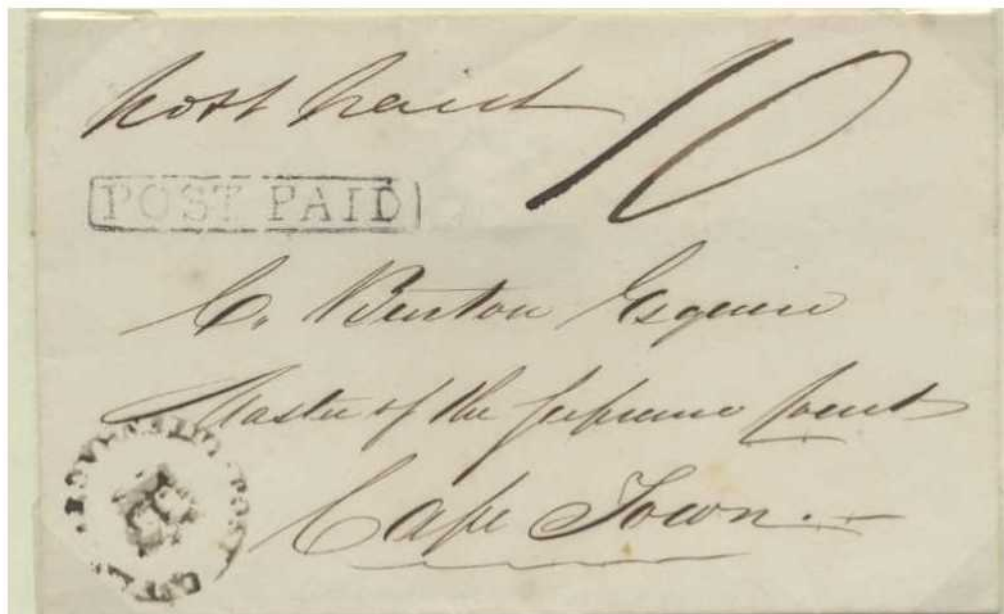 post paid 10
POST PAID
C. Burton Esquire
Master of the Supreme Court
Cape Town.
POST